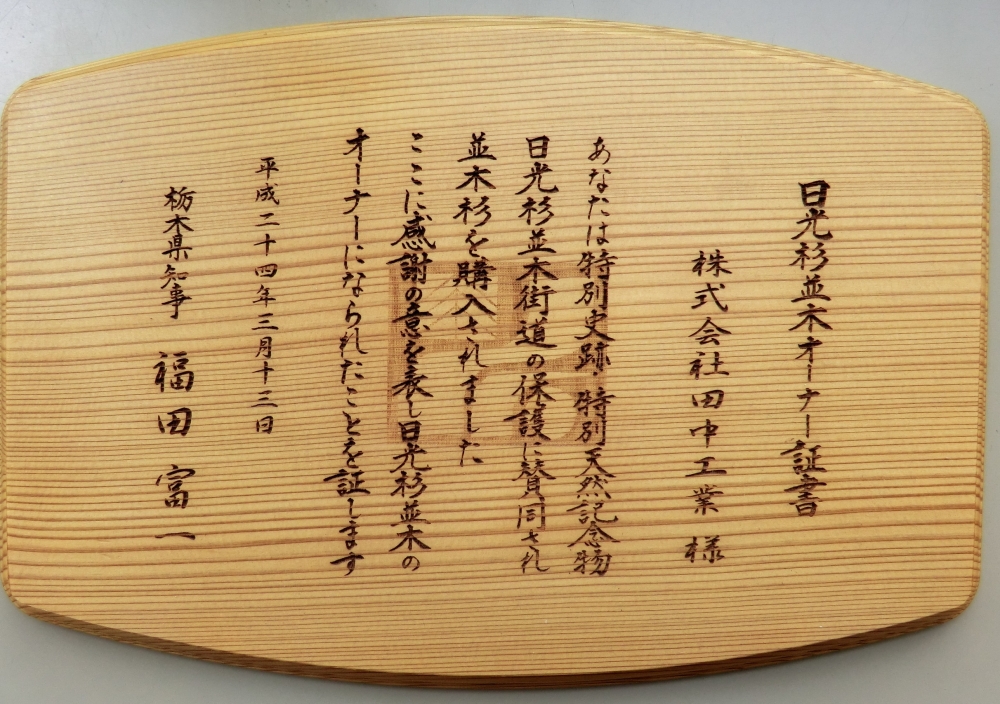 日光杉並木オーナー証書
株式会社田中工業 様
あなたは特別史跡・特別天然記念物
日光杉並木街道の保護に賛同され
並木杉を購入されました
ここに感謝の意を表し日光杉並木の
オーナーになられたことを証します
平成二十四年三月十三日
栃木県知事 福田富一